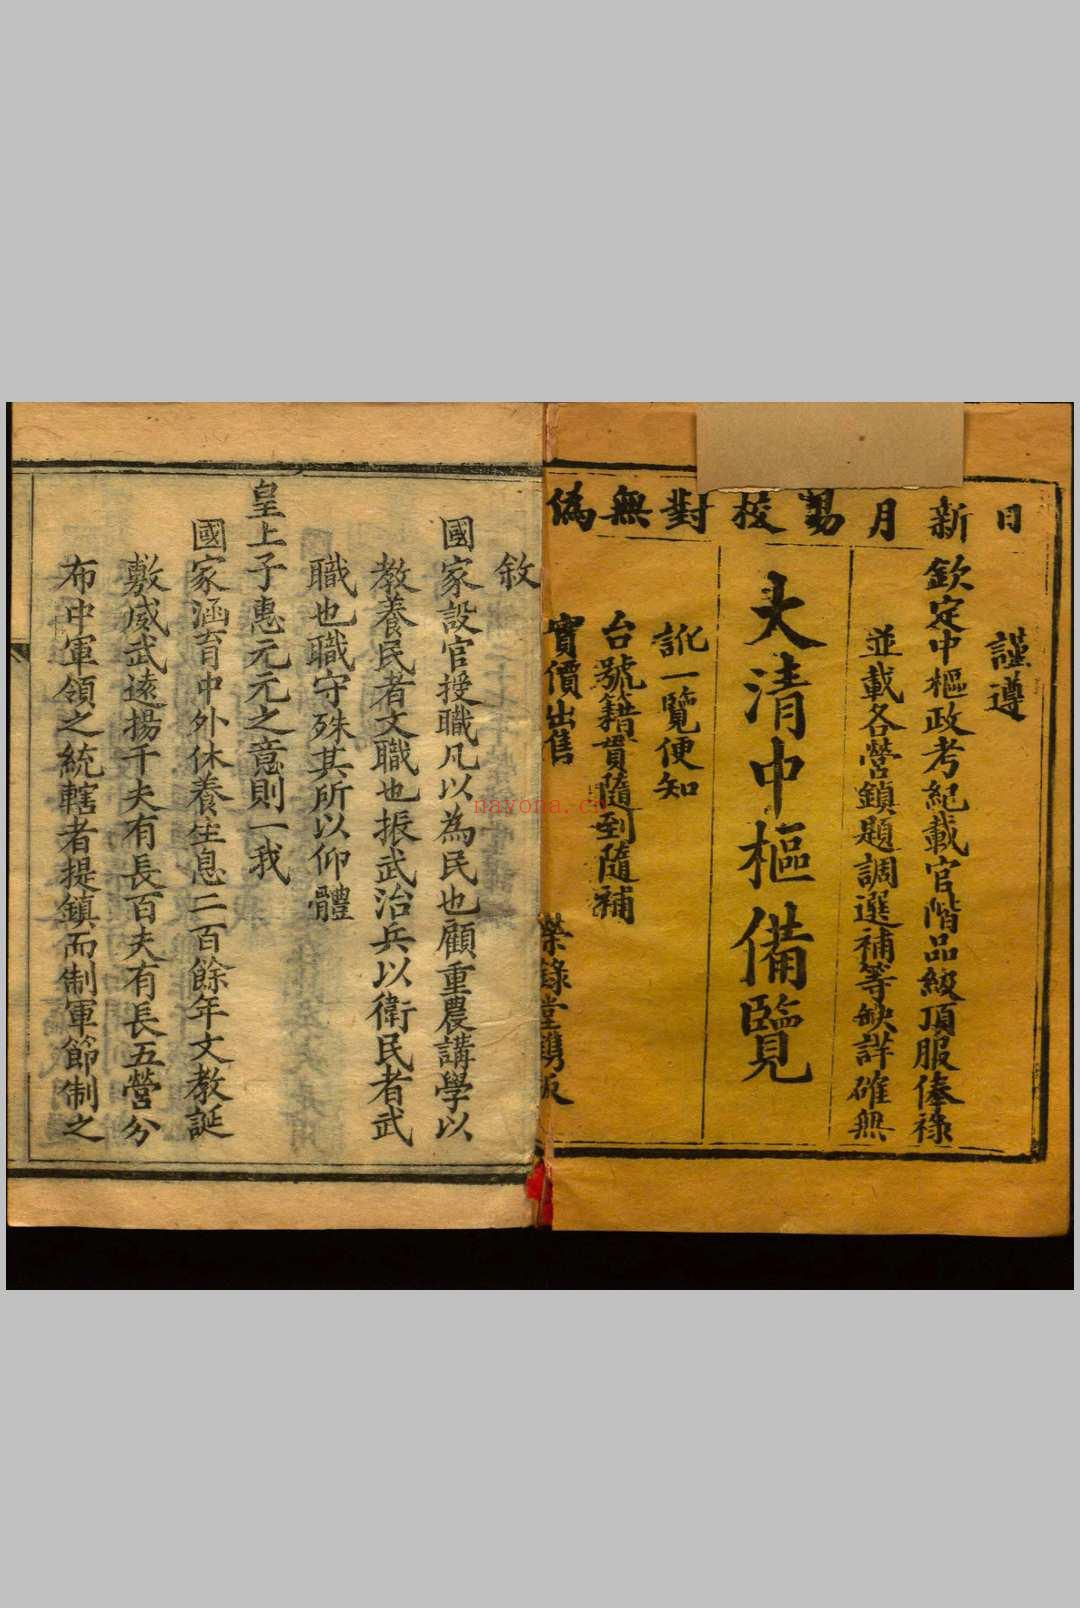 日新月易校對無偽
謹遵
欽定中樞政考紀載官階品級頂服俸祿
並載各營鎮題調選補等缺詳確無
大清中樞備覽
訛一覽便知
台號籍貫隨到隨補
實價出售
榮錄堂鐫板
敘
國家設官授職凡以為民也顧重農講學以
教養民者文職也振武治兵以衛民者武
職也職守殊其所以仰體
皇上子惠元元之意則一我
國家涵育中外休養生息二百餘年文教誕
敷威武遠揚千夫有長百夫有長五營分
布中軍領之統轄者提鎮而制軍節制之
nayona.cn